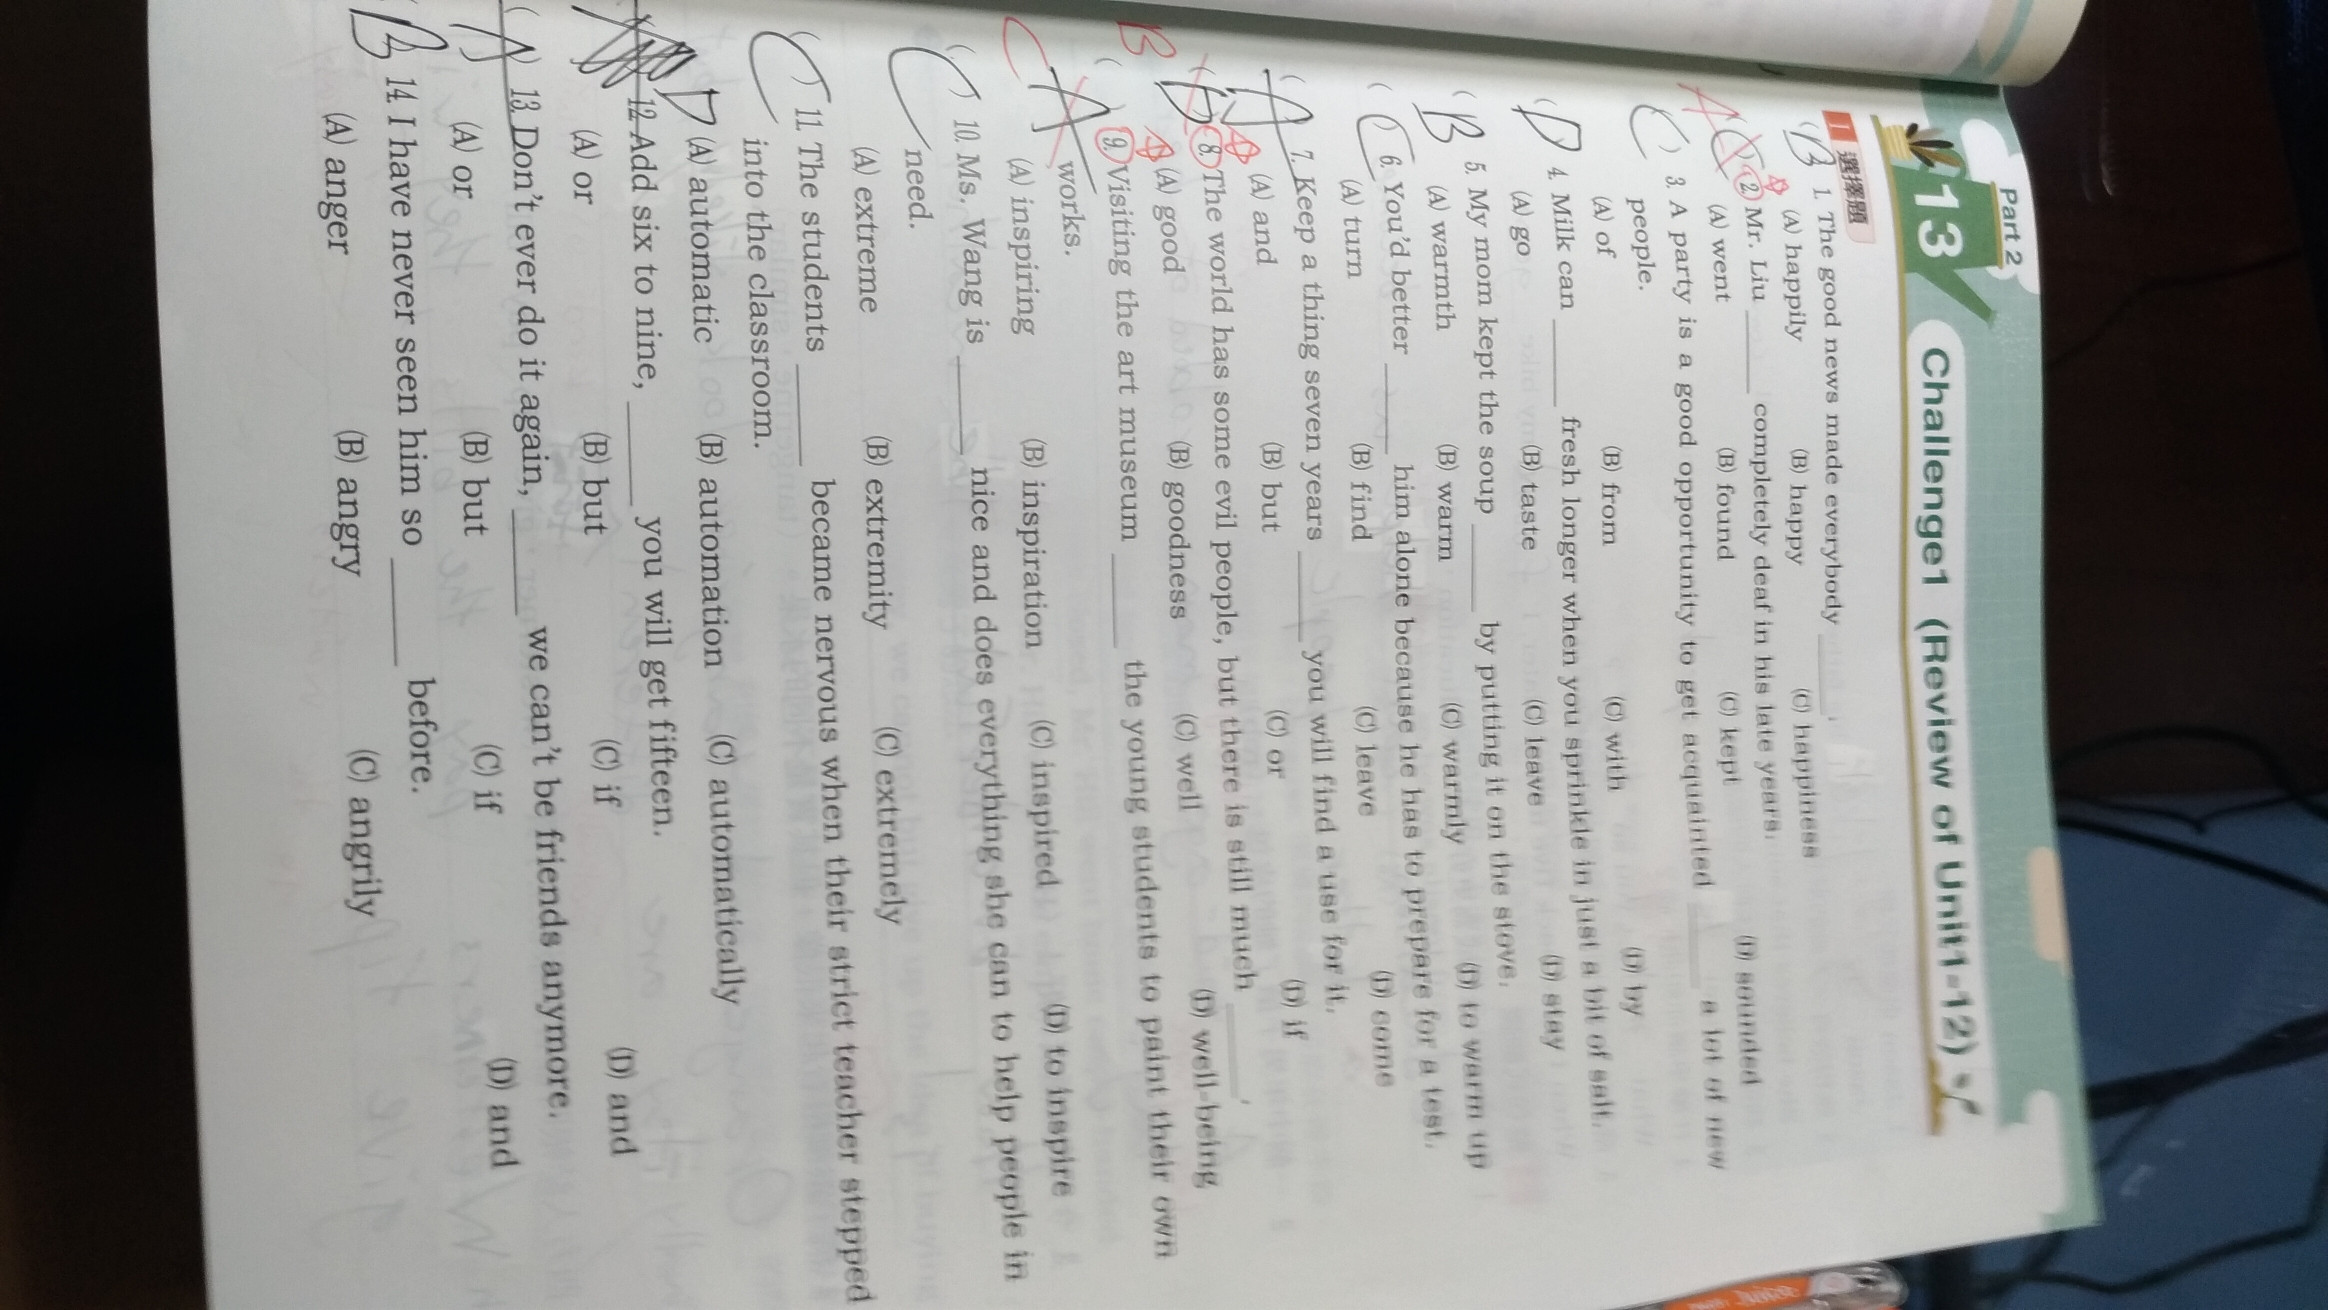 Part 2
13 Challenge1 (Review of Unit1-12)
I 選擇題
( B ) 1. The good news made everybody ______.
(A) happily (B) happy (C) happiness
A ( ) 2. Mr. Liu ______ completely deaf in his late years.
(A) went (B) found (C) kept (D) sounded
( C ) 3. A party is a good opportunity to get acquainted ______ a lot of new
people.
(A) of (B) from (C) with (D) by
( D 4. Milk can ______ fresh longer when you sprinkle in just a bit of salt.
(A) go (B) taste (C) leave (D) stay
( B 5. My mom kept the soup ______ by putting it on the stove.
(A) warmth (B) warm (C) warmly (D) to warm up
( C 6. You'd better ______ him alone because he has to prepare for a test.
(A) turn (B) find (C) leave (D) come
( A 7. Keep a thing seven years ______ you will find a use for it.
(A) and (B) but (C) or (D) if
B ( D 8. The world has some evil people, but there is still much ______.
(A) good (B) goodness (C) well (D) well-being
C ( A ) 9. Visiting the art museum ______ the young students to paint their own
works.
(A) inspiring (B) inspiration (C) inspired (D) to inspire
( C ) 10. Ms. Wang is ______ nice and does everything she can to help people in
need.
(A) extreme (B) extremity (C) extremely
( C ) 11. The students ______ became nervous when their strict teacher stepped
into the classroom.
(A) automatic (B) automation (C) automatically
D 12. Add six to nine, ______ you will get fifteen.
(A) or (B) but (C) if (D) and
( A ) 13. Don't ever do it again, ______ we can't be friends anymore.
(A) or (B) but (C) if (D) and
( B 14. I have never seen him so ______ before.
(A) anger (B) angry (C) angrily